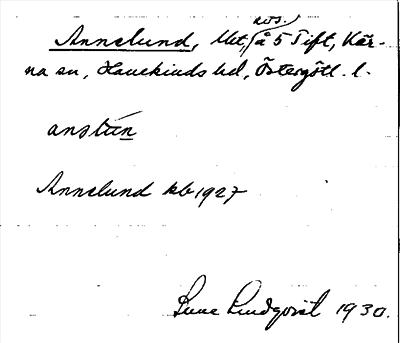 avs.
Annelund, lht, å 5 Tift, Kär-
na sn, Hanekinds hd, Östergötl. l.
anstún
Annelund kb 1927
Sune Lindqvist 1930.